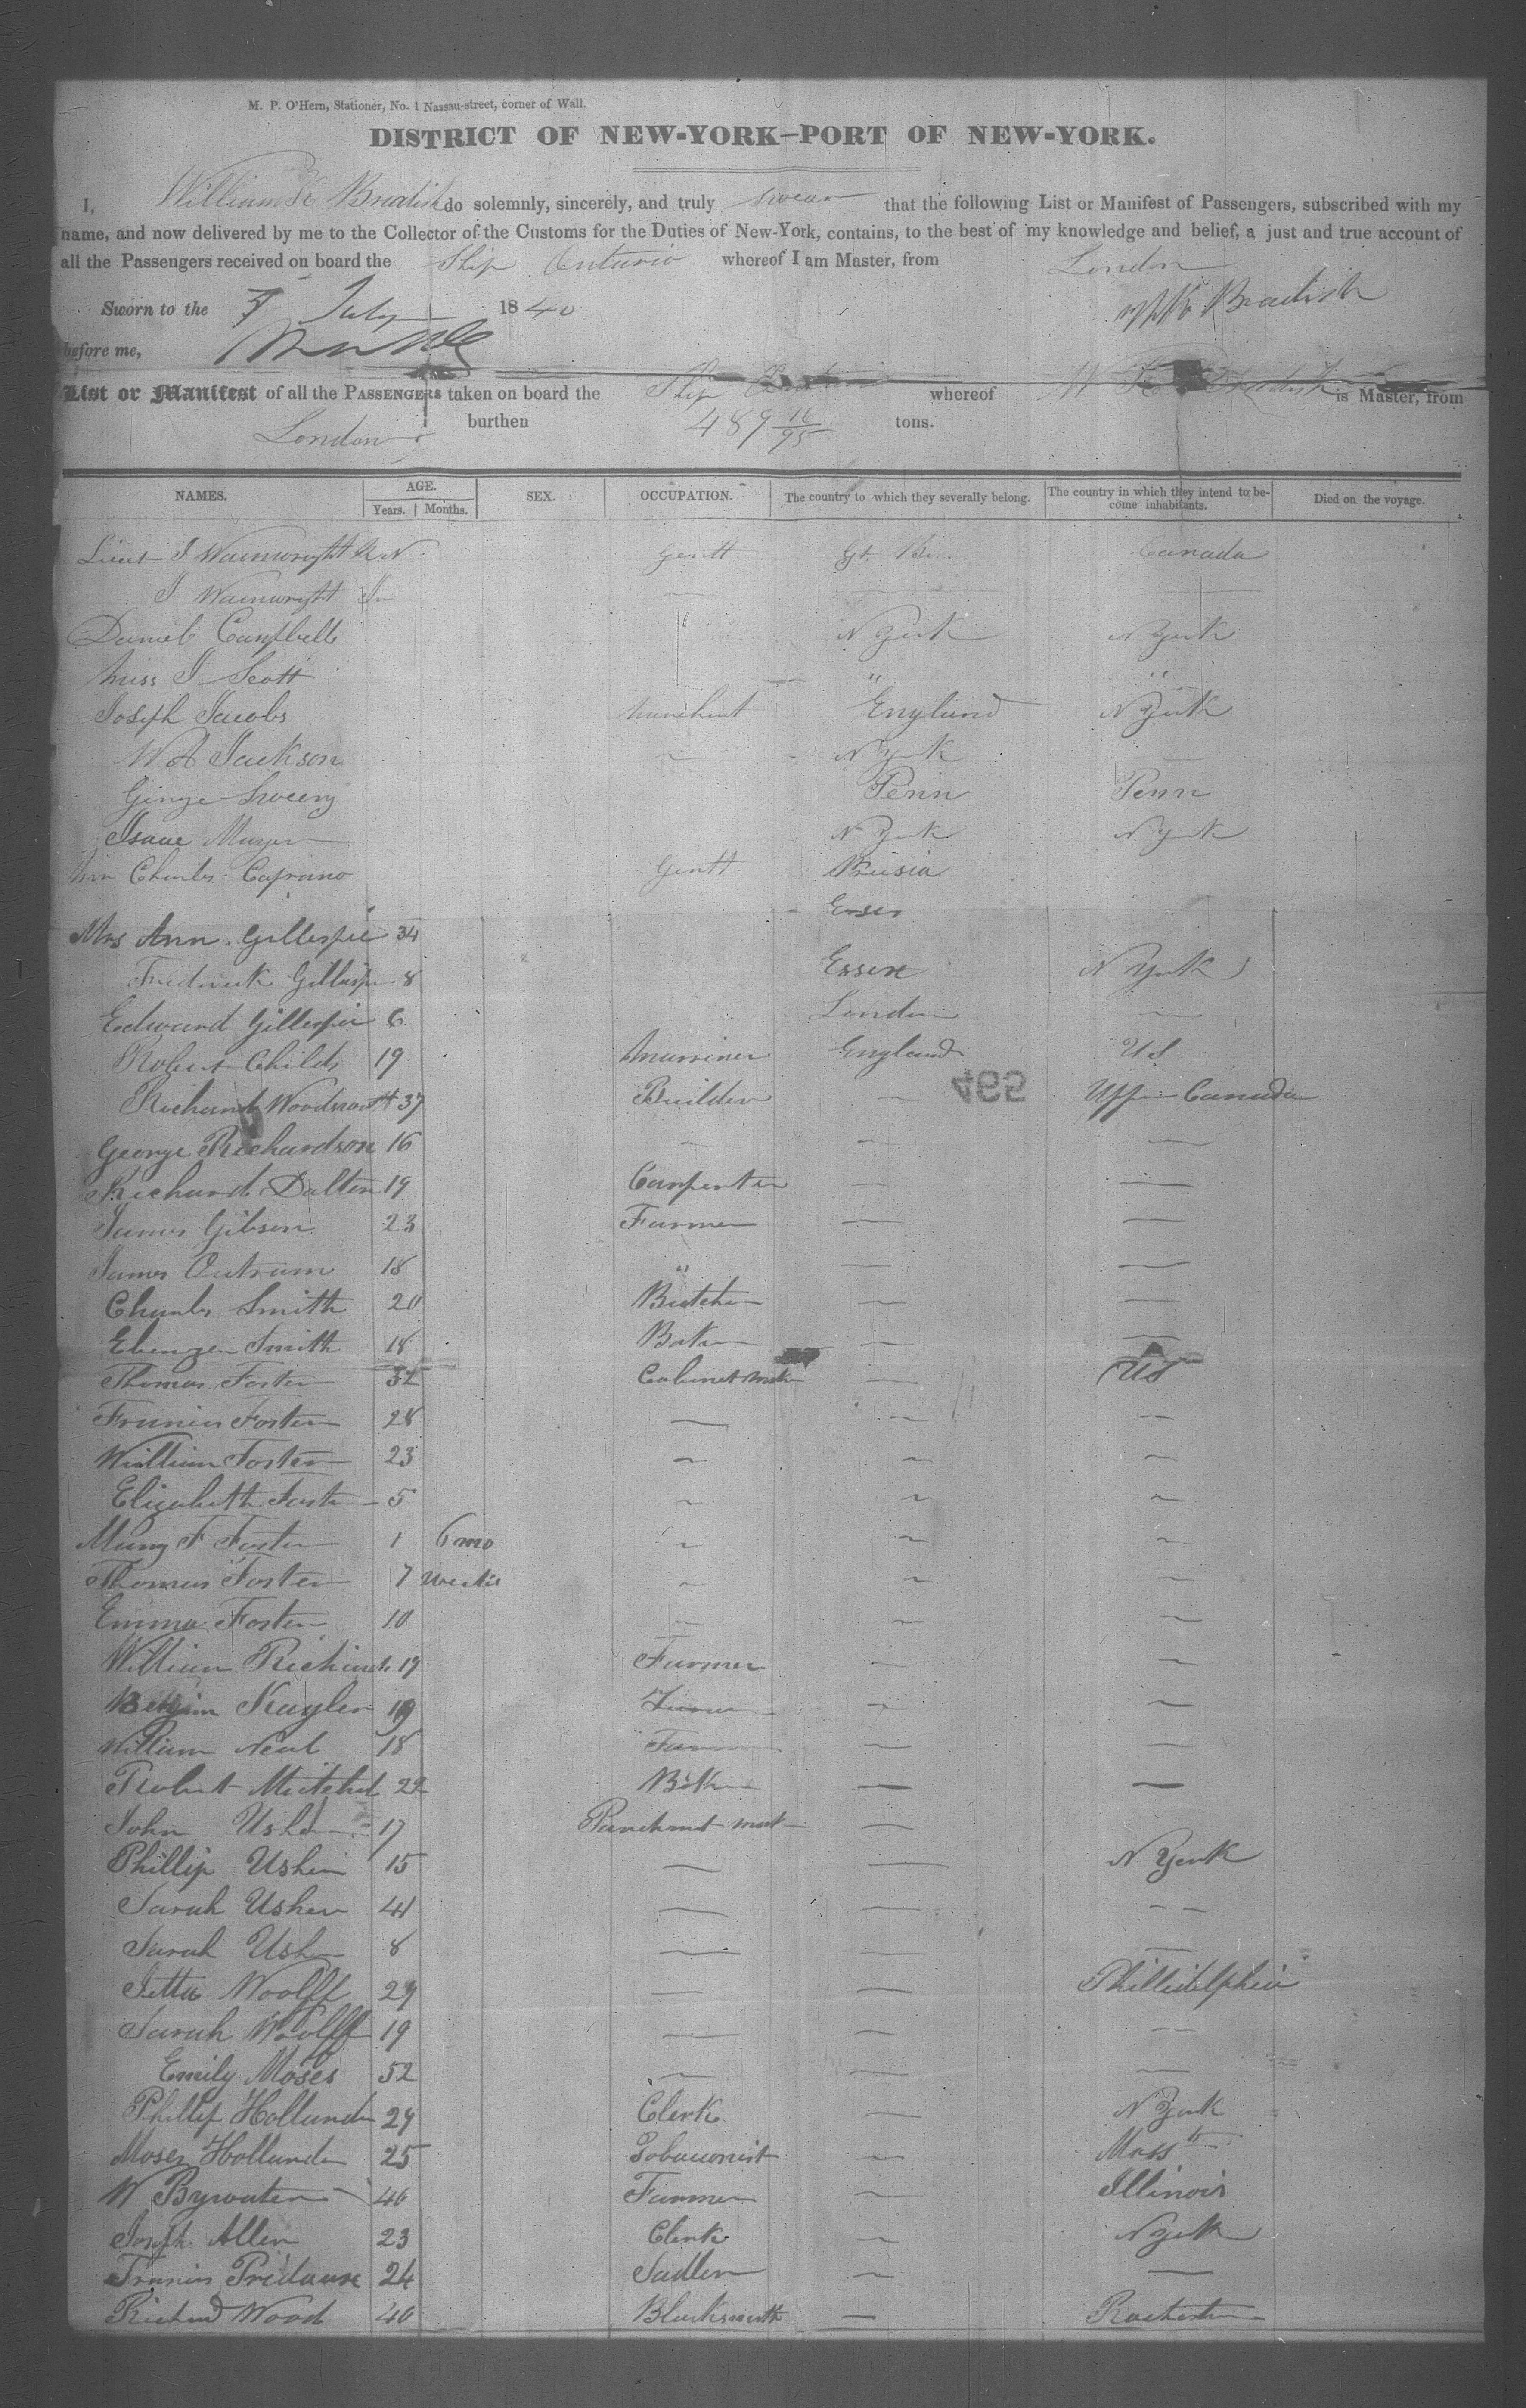 M. P. O'Hern, Stationer, No. 1 Nassau-street, corner of Wall.
DISTRICT OF NEW-YORK—PORT OF NEW-YORK.
I, William K Bradish do solemnly, sincerely, and truly swear that the following List or Manifest of Passengers, subscribed with my
name, and now delivered by me to the Collector of the Customs for the Duties of New-York, contains, to the best of my knowledge and belief, a just and true account of
all the Passengers received on board the Ship Ontario whereof I am Master, from London
Sworn to the 7 July 1840 Bradish
before me,
List or Manifest of all the PASSENGERS taken on board the Ship whereof W K Bradish is Master, from
London burthen 489 16/95 tons.
NAMES. AGE. SEX. OCCUPATION. The country to which they severally belong. The country in which they intend to be-
come inhabitants. Died on the voyage.
Years. Months.
Lieut J Wainwright R N Gentt Gt. Bri Canada
J Wainwright Jr — — —
Daniel Campbell N York N York
Miss J Scott " "
Joseph Jacobs Merchant England N York
W A Jackson — N York —
George Sweeny Penn Penn
Isaac N York N York
Charles Gentt Prusia
Essex
Mrs Ann Gillespie 34
Frederick Gillespie 8 Essex N York
Edward Gillespie 6 London —
Robert Childs 19 Marriner England U S
Richard 37 Builder — 495 Upper Canada
George Richardson 16 — — —
Richard Dalten 19 Carpenter — —
James Gibson 23 Farmer — —
James Outram 18 " — —
Charles Smith 20 Butcher — —
Ebenezer Smith 18 Baker — —
Thomas Foster 32 Cabinet Mak — US
Francis Foster 28 — — —
William Foster 23 — — —
Elizabeth Foster 5 — — —
Mary F Foster 1 6 mo — — —
Thomas Foster 7 weeks — — —
Emma Foster 10 — — —
William Richards 19 Farmer — —
Kayler 19 — —
William Neal 18 Farmer — —
Robert Mitchel 22 Baker — —
John Usher 17 — —
Phillip Usher 15 — — N York
Sarah Usher 41 — — — —
Sarah Usher 8 — — —
Jetta Woolff 29 — — Phillidelphia
Sarah Woolff 19 — — —
Emily Moses 52 — — —
Phillip Hollander 29 Clerk — N York
Moses Hollander 25 Tobacconist — Masstts
W Bywater 46 Farmer — Illinois
Joseph Allen 23 Clerk — N York
Francis Prideaux 24 Sadler — —
Richard Wood 40 Blacksmith — Rochester